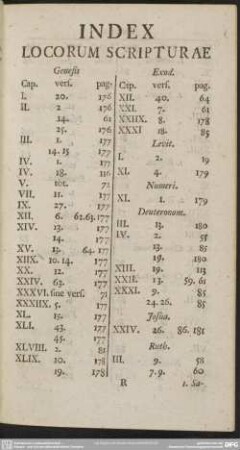 INDEX
LOCORUM SCRIPTURAE
Genesis
Cap. vers. pag.
I. 20. 176
II. 2 176
24. 61
25. 176
III. 1. 177
14. 15 177
IV. 1. 177
IV. 18.
V. 71
VII. 11. 177
IX. 27. 177
XII. 6. 62.63. 177
XIV. 13. 177
14. 177
XV. 13. 64. 177
XIIX. 10. 14. 177
XX. 12. 177
XXIV. 63. 177
XXXVI. sine vers. 71
XXXIIX. 5. 177
XL. 15. 177
XLI. 43. 177
45. 177
XLVIII. 2. 82
XLIX. 10. 178
19. 178
Exod.
Cap. vers. pag.
XII. 40. 64
XXI. 7. 61
XXIIX. 8. 178
XXXI 18. 85
Levit.
I. 2. 19
XI. 4. 179
Numeri.
XI. 1. 179
Deuteronom.
III. 13. 180
IV. 2. 55
13. 85
19. 180
XIII. 19. 113
XXII. 13. 59. 61
XXXI. 9. 85
24. 26. 85
Josua.
XXIV. 26. 86. 181
Ruth.
III. 9. 58
7. 9. 60
R 1. Sa-